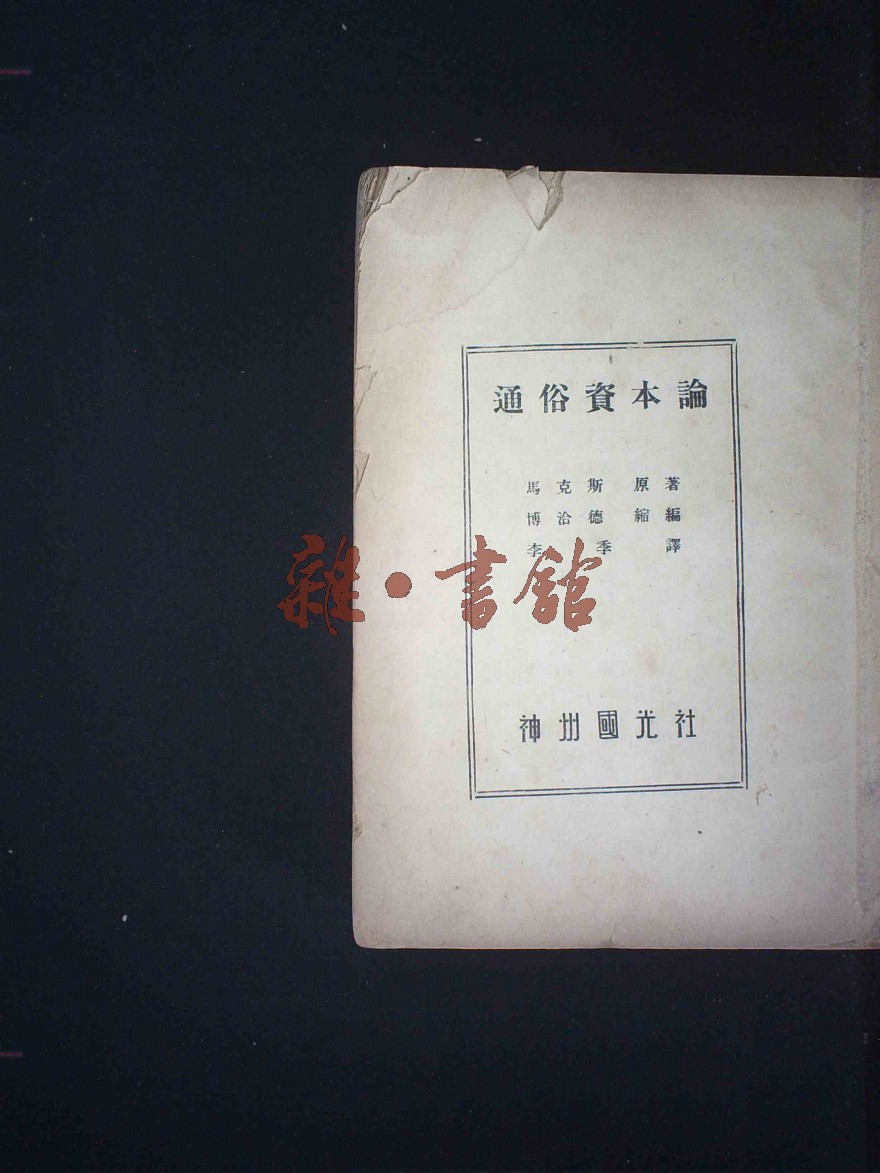 通俗資本論
馬克斯 原著
博洽德 縮編
李季 譯
雜·書舘
神州國光社